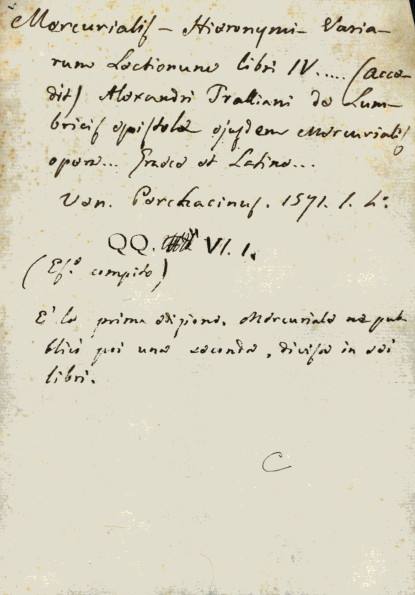 Mercurialis - Hieronymi - Varia-
rum Lectionum libri IV..... (acce-
dit) Alexandri Tralliani de Lum-
bricis epistola ejusdem Mercurialis
opera... Graece et Latine...
Ven. Perchacinus. 1571. 1. 4.
QQ. VI. 1.
(Es.º compito)
E' la prima edizione. Mercuriale ne pub-
blicò poi una seconda, divisa in sei
libri.
C